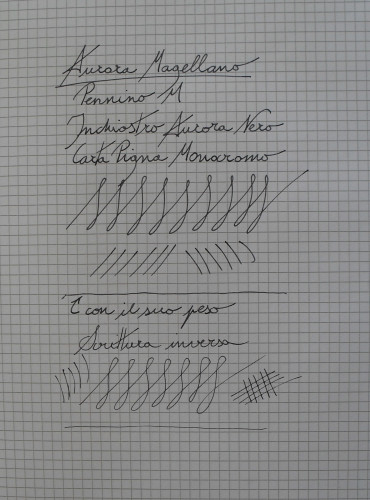 Aurora Magellano
Pennino M
Inchiostro Aurora Nero
Carta Pigna Monocromo
↑ con il suo peso
Scrittura inversa